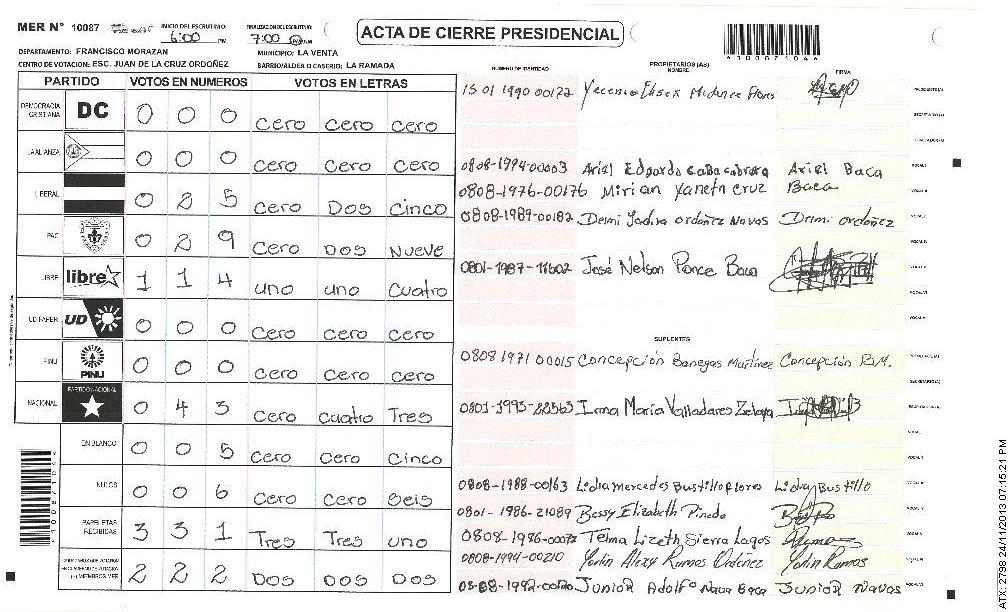 MER N° 10087 INICIO DEL ESCRUTINIO: 6:00 PM FINALIZACION DEL ESCRUTINIO: 7:00 PM AM
ACTA DE CIERRE PRESIDENCIAL
*10087104*
DEPARTAMENTO: FRANCISCO MORAZAN MUNICIPIO: LA VENTA
CENTRO DE VOTACION: ESC. JUAN DE LA CRUZ ORDOÑEZ BARRIO/ALDEA O CASERIO: LA RAMADA
PARTIDO VOTOS EN NUMEROS VOTOS EN LETRAS
DEMOCRACIA CRISTIANA DC 0 0 0 cero cero cero
LA ALIANZA 0 0 0 cero cero cero
LIBERAL 0 2 5 cero Dos cinco
PAC 0 2 9 cero Dos Nueve
LIBRE libre 1 1 4 uno uno cuatro
UD FAPER UD 0 0 0 cero cero cero
PINU PINU 0 0 0 cero cero cero
NACIONAL PARTIDO NACIONAL 0 4 3 cero cuatro Tres
EN BLANCO 0 0 5 cero cero cinco
NULOS 0 0 6 cero cero seis
PAPELETAS RECIBIDAS 3 3 1 Tres Tres uno
(+) MIEMBROS MER 2 2 2 DOS DOS DOS
*10087104*
NUMERO DE IDENTIDAD PROPIETARIOS (AS) NOMBRE FIRMA
15 01 1990 00172 PRESIDENTE(A)
SECRETARIO(A)
ESCRUTADOR(A)
0808-1994-00003 Ariel Edgardo Ariel Baca VOCAL I
0808-1976-00176 Mirian Yaneth cruz Baca VOCAL II
0808-1989-00182 Deimi Yadira ordoñez Navas Deimi ordoñez VOCAL III
VOCAL IV
0801-1987-11602 José Nelson Ponce Baca VOCAL V
VOCAL VI
SUPLENTES
0808 1971 00015 Concepción Banegas Martínez Concepción B.M. PRESIDENTE(A)
SECRETARIO(A)
0801-1993-22563 Irma María Valladares Zelaya ESCRUTADOR(A)
VOCAL I
VOCAL II
0808-1988-00163 Lidia mercedes Bustillo flores Lidia Bustillo VOCAL III
0801-1986-21089 Bessy Elizabeth Pineda VOCAL IV
0808-1986-00073 Telma Lizeth Sierra Lagos VOCAL V
0808-1994-00210 Yorlin Alexy Ramos Ordóñez Yorlin Ramos
Junior Adolfo Nava Baca Junior Navas VOCAL VI
ATX-2798 24/11/2013 07:15:21 PM